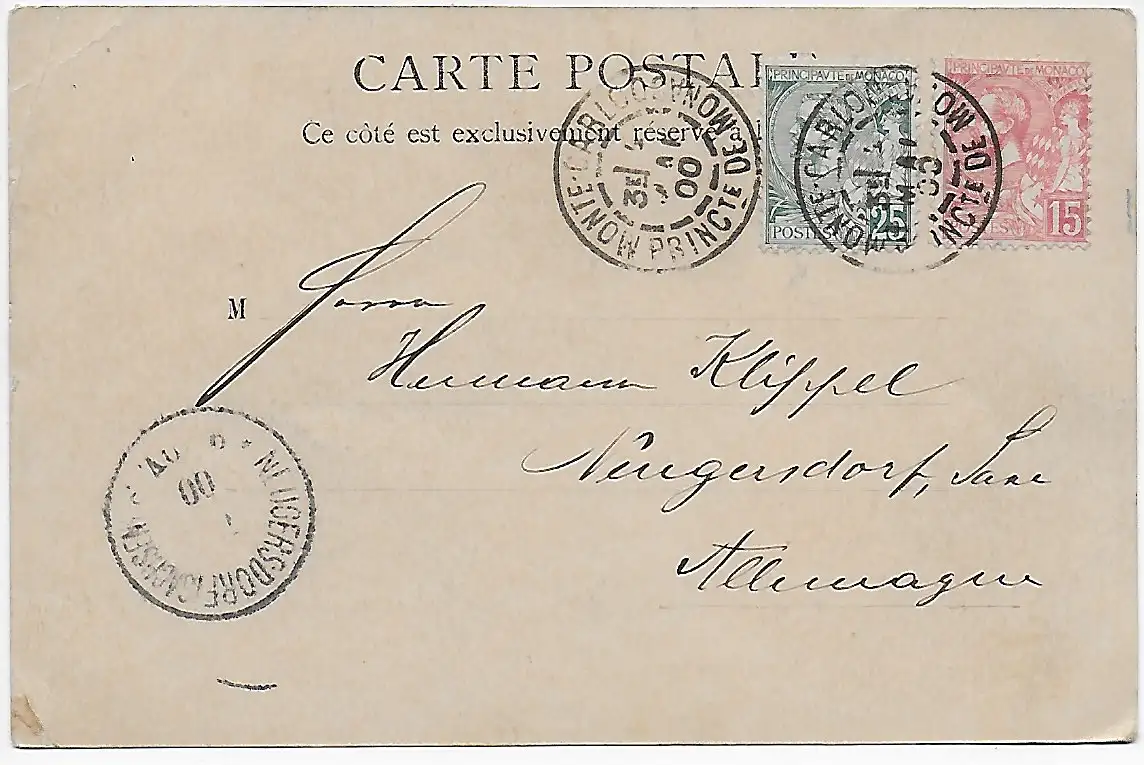 CARTE POSTAL
Ce côté est exclusivement réservé à l
PRINCIPAUTE DE MONACO
POSTES 25
PRINCIPAVTE DE MONACO
15
MONTE-CARLO
PRINCTE DE MONACO
00
MONTE-CARLO
DE MO
M Herrn
Hermann Klippel
Neugersdorf, Saxe
Allemagne
NEUGERSDORF (SACHSEN)
00